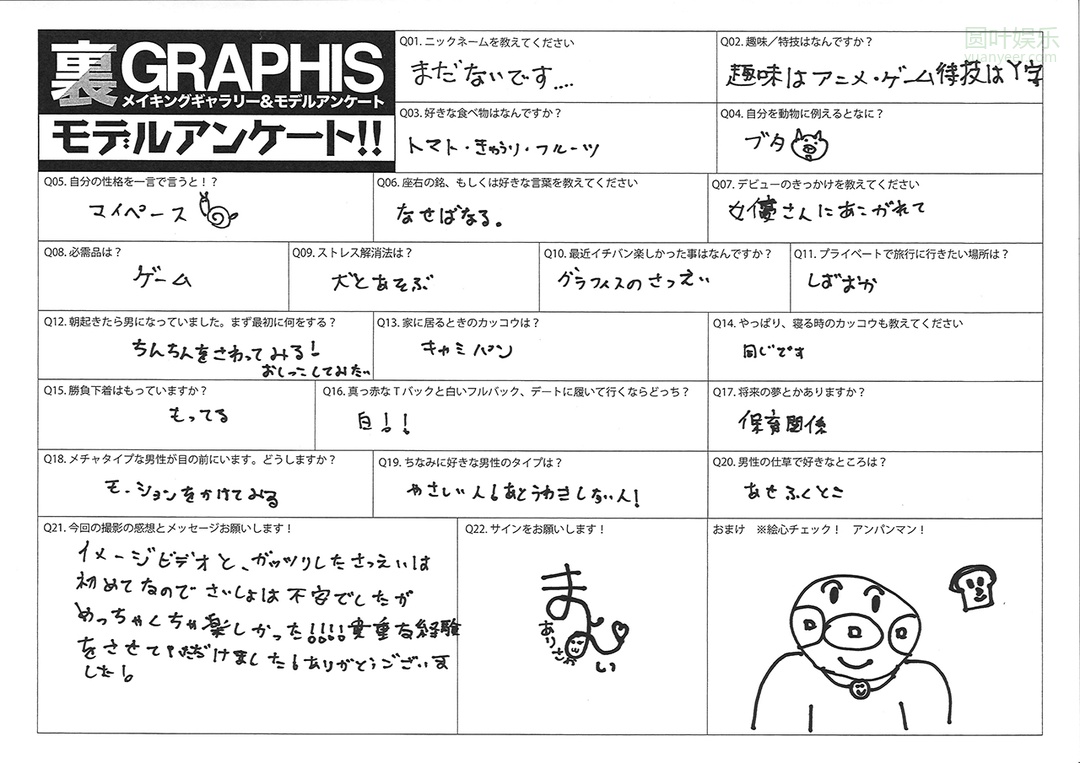 圆叶娱乐
yuanyeer.com
裏GRAPHIS
メイキングギャラリー&モデルアンケート
モデルアンケート!!
Q01. ニックネームを教えてください
まだないです....
Q02. 趣味／特技はなんですか？
趣味はアニメ・ゲーム特技はY字
Q03. 好きな食べ物はなんですか？
トマト・きゅうり・フルーツ
Q04. 自分を動物に例えるとなに？
ブタ
Q05. 自分の性格を一言で言うと！？
マイペース
Q06. 座右の銘、もしくは好きな言葉を教えてください
なせばなる。
Q07. デビューのきっかけを教えてください
女優さんにあこがれて
Q08. 必需品は？
ゲーム
Q09. ストレス解消法は？
犬とあそぶ
Q10. 最近イチバン楽しかった事はなんですか？
グラフィスのさつえい
Q11. プライベートで旅行に行きたい場所は？
しぶおか
Q12. 朝起きたら男になっていました。まず最初に何をする？
ちんちんをさわってみる！
おしっこしてみたい
Q13. 家に居るときのカッコウは？
キャミパン
Q14. やっぱり、寝る時のカッコウも教えてください
同じです
Q15. 勝負下着はもっていますか？
もってる
Q16. 真っ赤なTバックと白いフルバック、デートに履いて行くならどっち？
白！！
Q17. 将来の夢とかありますか？
保育関係
Q18. メチャタイプな男性が目の前にいます。どうしますか？
モーションをかけてみる
Q19. ちなみに好きな男性のタイプは？
やさしい人！あとうわきしない人！
Q20. 男性の仕草で好きなところは？
あせふくとこ
Q21. 今回の撮影の感想とメッセージお願いします！
イメージビデオと、ガッツリしたさつえいは
初めてなのでさいしょは不安でしたが
めっちゃくちゃ楽しかった！！！！貴重な経験
をさせていただけました！ありがとうございま
した！
Q22. サインをお願いします！
おまけ　※絵心チェック！　アンパンマン！